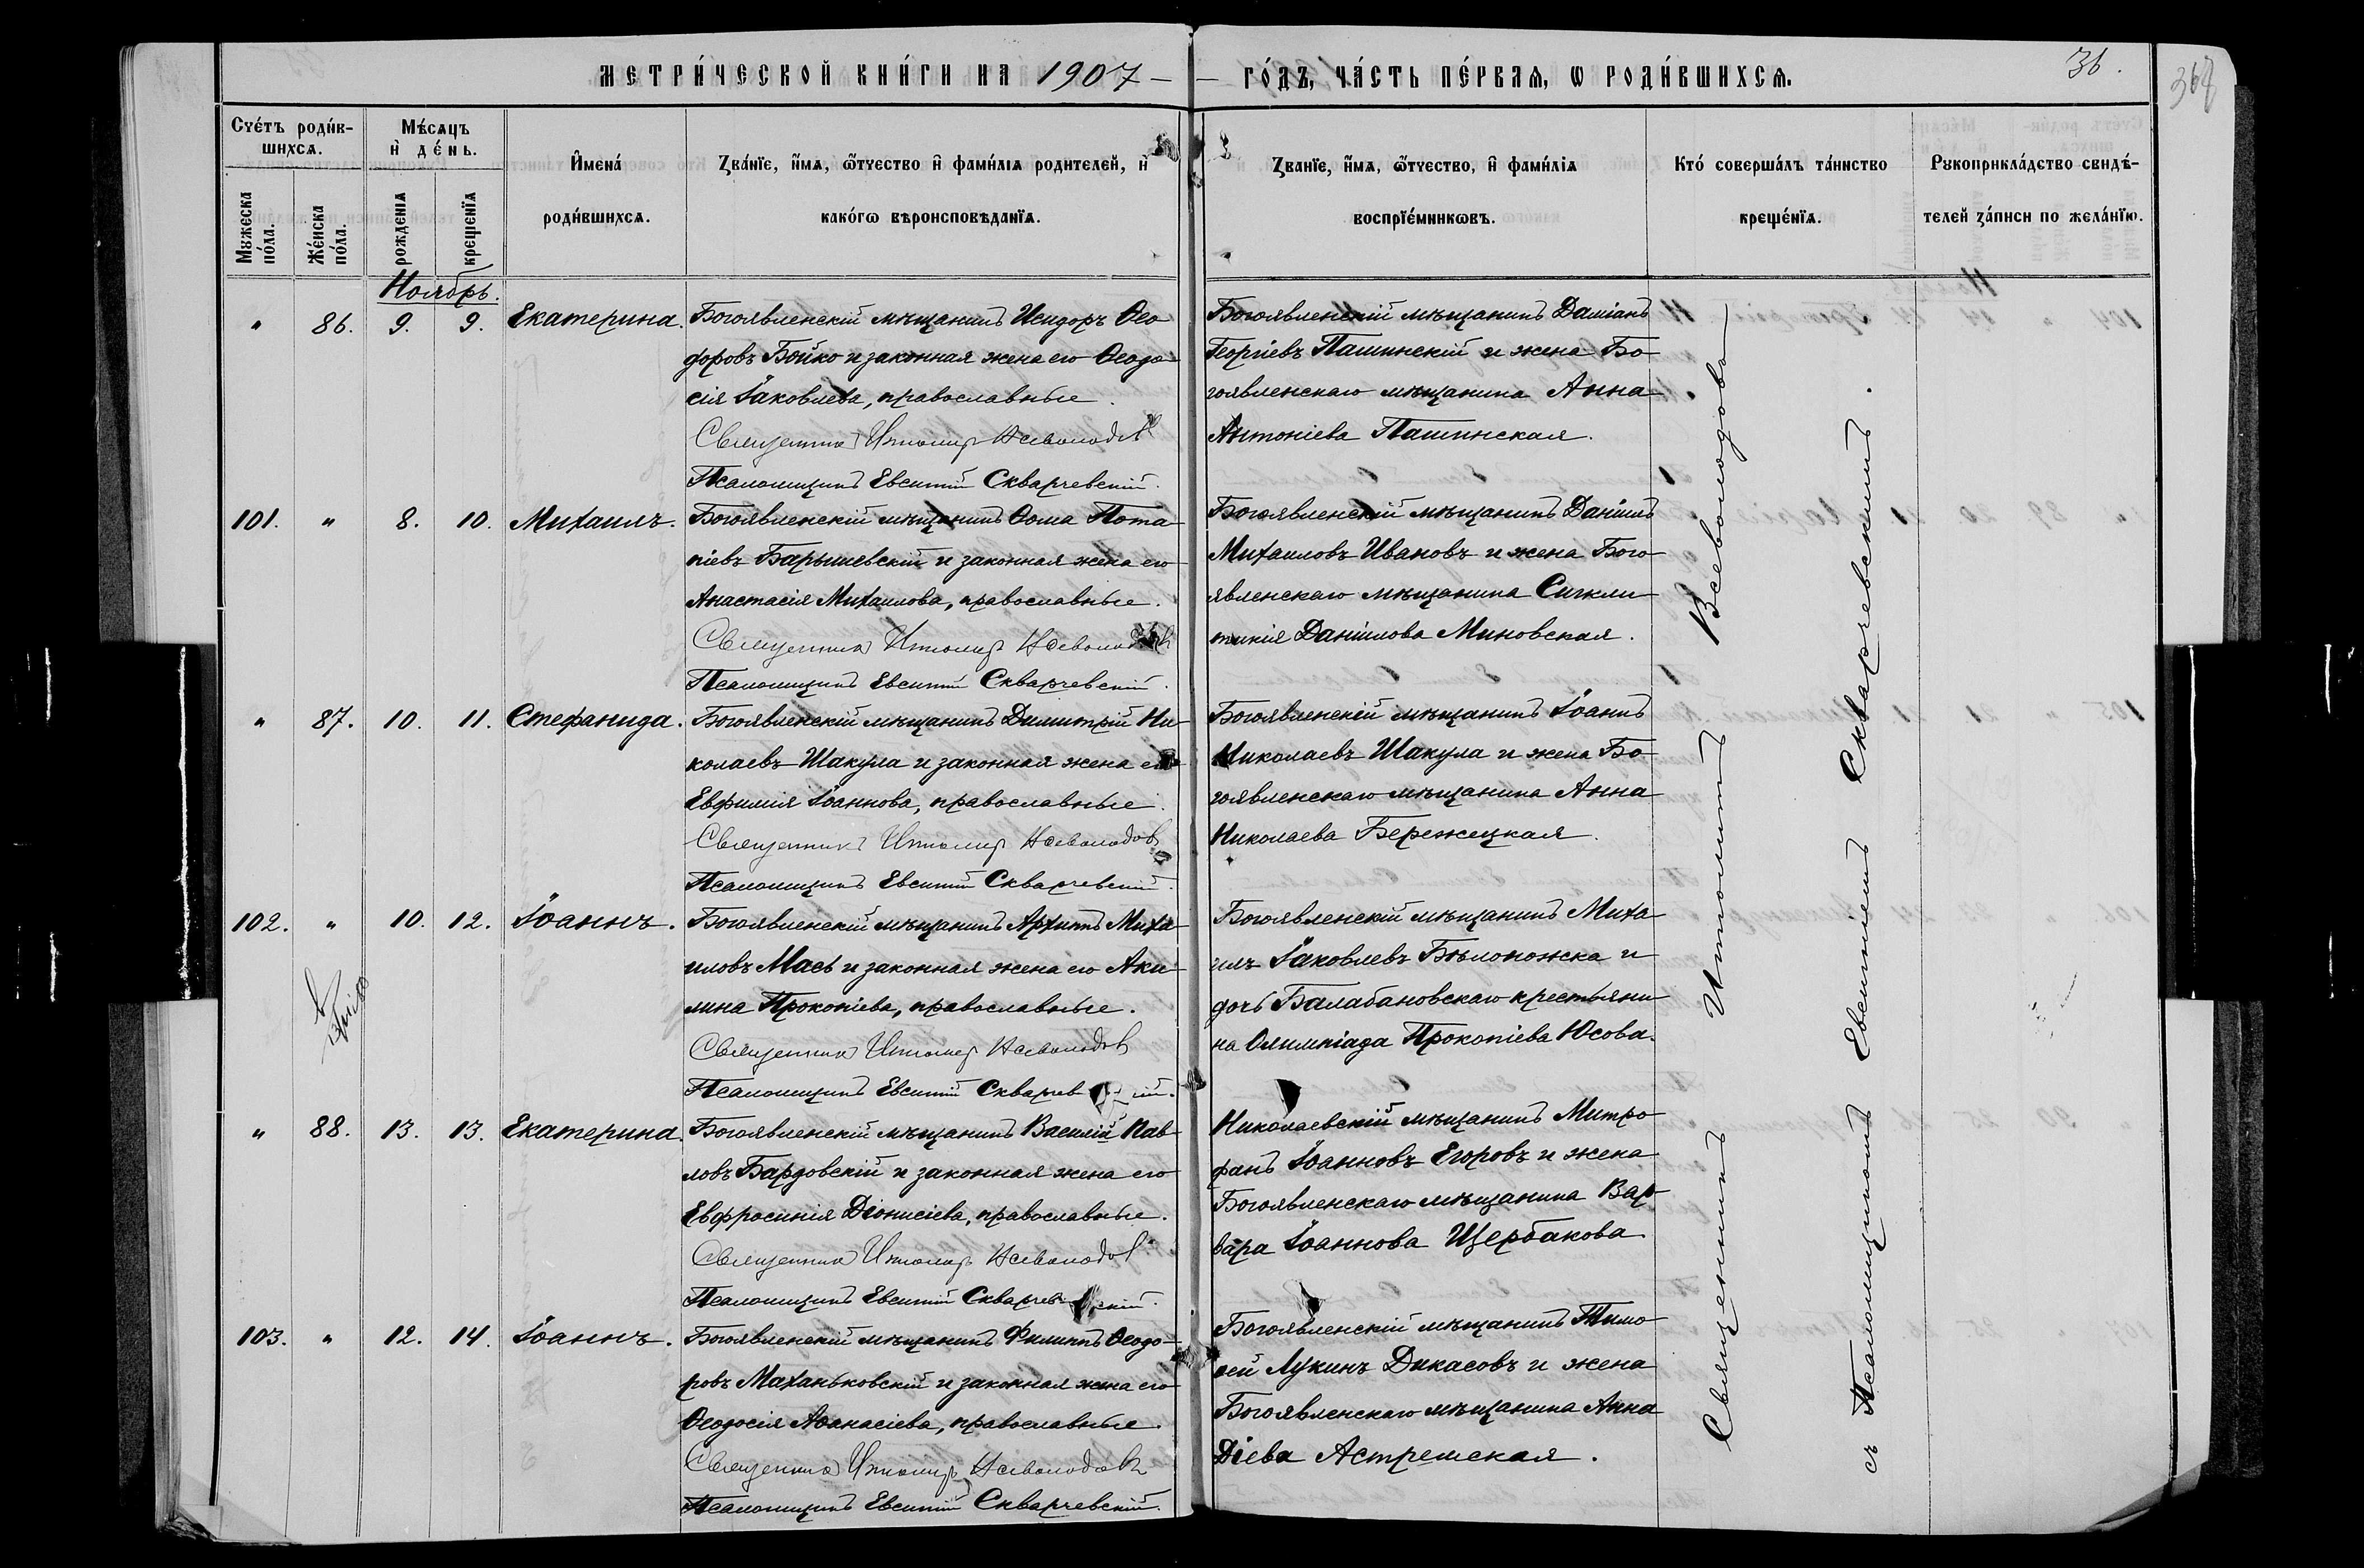 МЕТРИ́ЧЕСКОЙ КНИ́ГИ НА 1907 — — ГО́ДЪ, ЧА́СТЬ ПЕ́РВАЯ, Ѡ РОДИ́ВШИХСѦ.
36.
Счéтъ роди́в-
шихсѧ.
Мужеска по́ла.
Же́нска по́ла.
Мѣ́сѧцъ
и҆ де́нь.
рожденїѧ
крещенїѧ
И҆мена́
роди́вшихсѧ.
Зва́нїе, и҆́мѧ, ѻ҆́тчество и҆ фами́лїѧ родителей, и҆
како́гѡ вѣроисповѣданїѧ.
Званїе, и҆́мѧ, ѻ҆́тчество, и҆ фами́лїѧ
воспрїе́мникѡвъ.
Кто́ соверша́лъ та́инство
креще́нїѧ.
Рукоприкла́дство свидѣ́-
телей за́писи по жела́нїю.
Ноябрь.
" 86. 9. 9. Екатерина.
Богоявленскій мѣщанинъ Исидоръ Ѳео-
доровъ Бойко и законная жена его Ѳеодо-
сія Іаковлева, православные.
Священникъ Ипполитъ Всеволодовъ
Псаломщикъ Евсигній Скварчевскій.
Богоявленскій мѣщанинъ Даміанъ
Георгіевъ Пашинскій и жена Бо-
гоявленскаго мѣщанина Анна
Антоніева Пашинская.
101. " 8. 10. Михаилъ.
Богоявленскій мѣщанинъ Ѳома Пота-
піевъ Барышевскій и законная жена его
Анастасія Михаилова, православные.
Священникъ Ипполитъ Всеволодовъ
Псаломщикъ Евсигній Скварчевскій.
Богоявленскій мѣщанинъ Даніилъ
Михаиловъ Ивановъ и жена Бого-
явленскаго мѣщанина Сигкли-
тикія Даніилова Миновская.
" 87. 10. 11. Стефанида.
Богоявленскій мѣщанинъ Димитрій Ни-
колаевъ Шакула и законная жена его
Евфимія Іоаннова, православные.
Священникъ Ипполитъ Всеволодовъ
Псаломщикъ Евсигній Скварчевскій.
Богоявленскій мѣщанинъ Іоаннъ
Николаевъ Шакула и жена Бо-
гоявленскаго мѣщанина Анна
Николаева Бережецкая.
102. " 10. 12. Іоаннъ.
Богоявленскій мѣщанинъ Архипъ Миха-
иловъ Мась и законная жена его Аки-
лина Прокопіева, православные.
Священникъ Ипполитъ Всеволодовъ
Псаломщикъ Евсигній Скварчевскій.
Богоявленскій мѣщанинъ Миха-
илъ Іаковлевъ Бѣлоножка и
дочь Балабановскаго крестьяни-
на Олимпіада Прокопіева Юсова.
" 88. 13. 13. Екатерина.
Богоявленскій мѣщанинъ Василій Пав-
ловъ Бардовскій и законная жена его
Евфросинія Діонисіева, православные.
Священникъ Ипполитъ Всеволодовъ
Псаломщикъ Евсигній Скварчевскій.
Николаевскій мѣщанинъ Митро-
фанъ Іоанновъ Егоровъ и жена
Богоявленскаго мѣщанина Вар-
вара Іоаннова Щербакова.
103. " 12. 14. Іоаннъ.
Богоявленскій мѣщанинъ Филиппъ Ѳеодо-
ровъ Маханьковскій и законная жена его
Ѳеодосія Аѳанасіева, православные.
Священникъ Ипполитъ Всеволодовъ
Псаломщикъ Евсигній Скварчевскій.
Богоявленскій мѣщанинъ Тимо-
ѳей Лукинъ Дикасовъ и жена
Богоявленскаго мѣщанина Анна
Діева Астремская.
Священникъ Ипполитъ Всеволодовъ
съ Псаломщикомъ Евсигніемъ Скварчевскимъ.